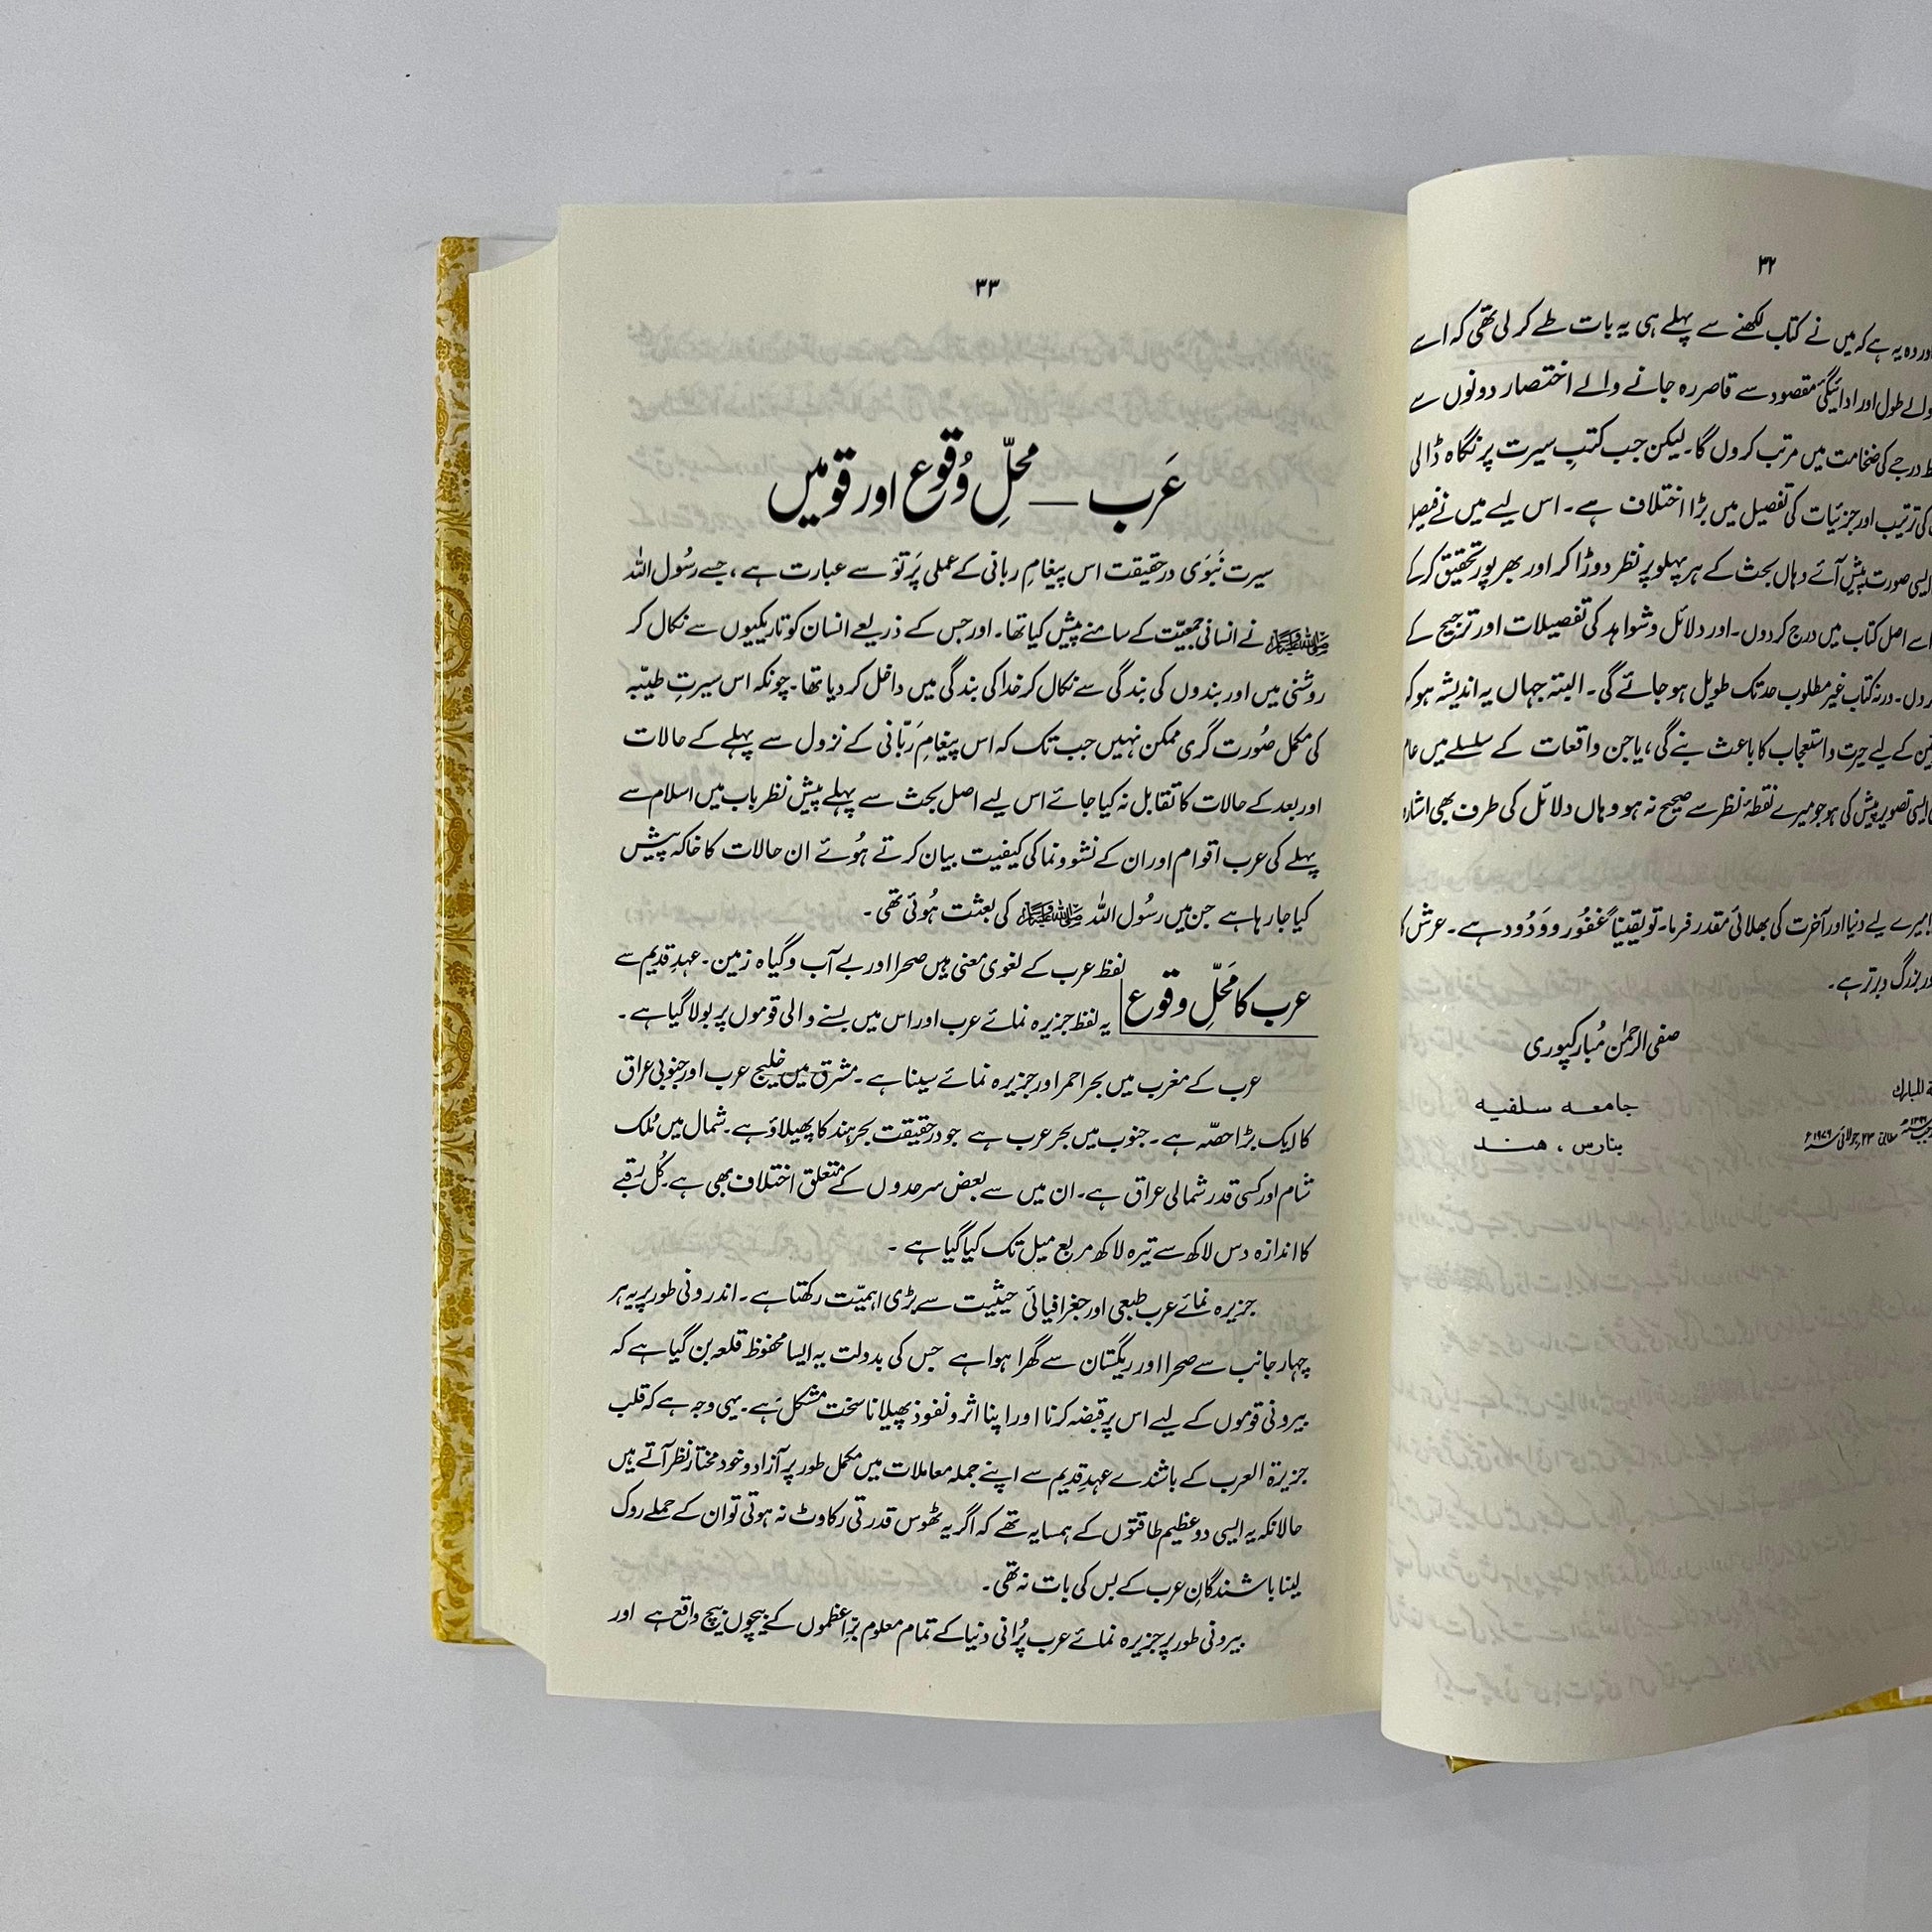 ۳۲
اور وہ یہ ہے کہ میں نے کتاب لکھنے سے پہلے ہی یہ بات طے کر لی تھی کہ اسے
طول اور ادائیگیٔ مقصود سے قاصر رہ جانے والے اختصار دونوں سے
درجے کی ضخامت میں مرتب کروں گا۔ لیکن جب کتبِ سیرت پر نگاہ ڈالی
کی ترتیب اور جزئیات کی تفصیل میں بڑا اختلاف ہے۔ اس لیے میں نے فیصل
ایسی صورت پیش آئے وہاں بحث کے ہر پہلو پر نظر دوڑا کر اور بھرپور تحقیق کر کے
اسے اصل کتاب میں درج کر دوں۔ اور دلائل و شواہد کی تفصیلات اور ترجیح کے
دں۔ ورنہ کتاب غیر مطلوب حد تک طویل ہو جائے گی۔ البتہ جہاں یہ اندیشہ ہو کہ
کے لیے حیرت و استعجاب کا باعث بنے گی، یا جن واقعات کے سلسلے میں عام
ایسی تصویر پیش کی ہو جو میرے نقطۂ نظر سے صحیح نہ ہو وہاں دلائل کی طرف بھی اشارہ
میرے لیے دنیا اور آخرت کی بھلائی مقدر فرما۔ تو یقیناً غفُور و وَدُود ہے۔ عرش کا
اور بزرگ و برتر ہے۔
صفی الرحمٰن مُبارکپوری
جامعہ سلفیہ
بنارس ، ھند
المبارک
مطابق ۲۳ جولائی ۱۹۷۶ء
۳۳
عَرب — محلِّ وُقوع اور قومیں
سیرت نَبَوی درحقیقت اس پیغامِ ربانی کے عملی پَرتَو سے عبارت ہے ، جسے رسُول اللہ
ﷺ نے انسانی جمعیّت کے سامنے پیش کیا تھا۔ اور جس کے ذریعے انسان کو تاریکیوں سے نکال کر
روشنی میں اور بندوں کی بندگی سے نکال کر خدا کی بندگی میں داخل کر دیا تھا۔ چونکہ اس سیرتِ طیّبہ
کی مکمل صُورت گری ممکن نہیں جب تک کہ اس پیغامِ رَبّانی کے نزول سے پہلے کے حالات
اور بعد کے حالات کا تقابل نہ کیا جائے اس لیے اصل بحث سے پہلے پیش نظر باب میں اسلام سے
پہلے کی عرب اقوام اور ان کے نشوونما کی کیفیت بیان کرتے ہُوئے ان حالات کا خاکہ پیش
کیا جا رہا ہے جن میں رسُول اللہ ﷺ کی بعثت ہُوئی تھی ۔
عرب کا مَحَلِّ وقوع
لفظ عرب کے لغوی معنی ہیں صحرا اور بے آب و گیاہ زمین۔ عہدِ قدیم سے
یہ لفظ جزیرہ نمائے عرب اور اس میں بسنے والی قوموں پر بولا گیا ہے ۔
عرب کے مغرب میں بحر احمر اور جزیرہ نمائے سینا ہے۔ مشرق میں خلیج عرب اور جنوبی عراق
کا ایک بڑا حصّہ ہے۔ جنوب میں بحر عرب ہے جو درحقیقت بحر ہند کا پھیلاؤ ہے۔ شمال میں مُلک
شام اور کسی قدر شمالی عراق ہے۔ ان میں سے بعض سرحدوں کے متعلق اختلاف بھی ہے۔ کُل رقبے
کا اندازہ دس لاکھ سے تیرہ لاکھ مربع میل تک کیا گیا ہے ۔
جزیرہ نمائے عرب طبعی اور جغرافیائی حیثیت سے بڑی اہمیّت رکھتا ہے۔ اندرونی طور پر یہ ہر
چہار جانب سے صحرا اور ریگستان سے گھرا ہوا ہے جس کی بدولت یہ ایسا محفوظ قلعہ بن گیا ہے کہ
بیرونی قوموں کے لیے اس پر قبضہ کرنا اور اپنا اثر و نفوذ پھیلانا سخت مشکل ہے۔ یہی وجہ ہے کہ قلب
جزیرۃ العرب کے باشندے عہدِ قدیم سے اپنے جملہ معاملات میں مکمل طور پر آزاد و خود مختار نظر آتے ہیں
حالانکہ یہ ایسی دو عظیم طاقتوں کے ہمسایہ تھے کہ اگر یہ ٹھوس قدرتی رکاوٹ نہ ہوتی تو ان کے حملے روک
لینا باشندگانِ عرب کے بس کی بات نہ تھی ۔
بیرونی طور پر جزیرہ نمائے عرب پُرانی دنیا کے تمام معلوم برّاعظموں کے بیچوں بیچ واقع ہے اور